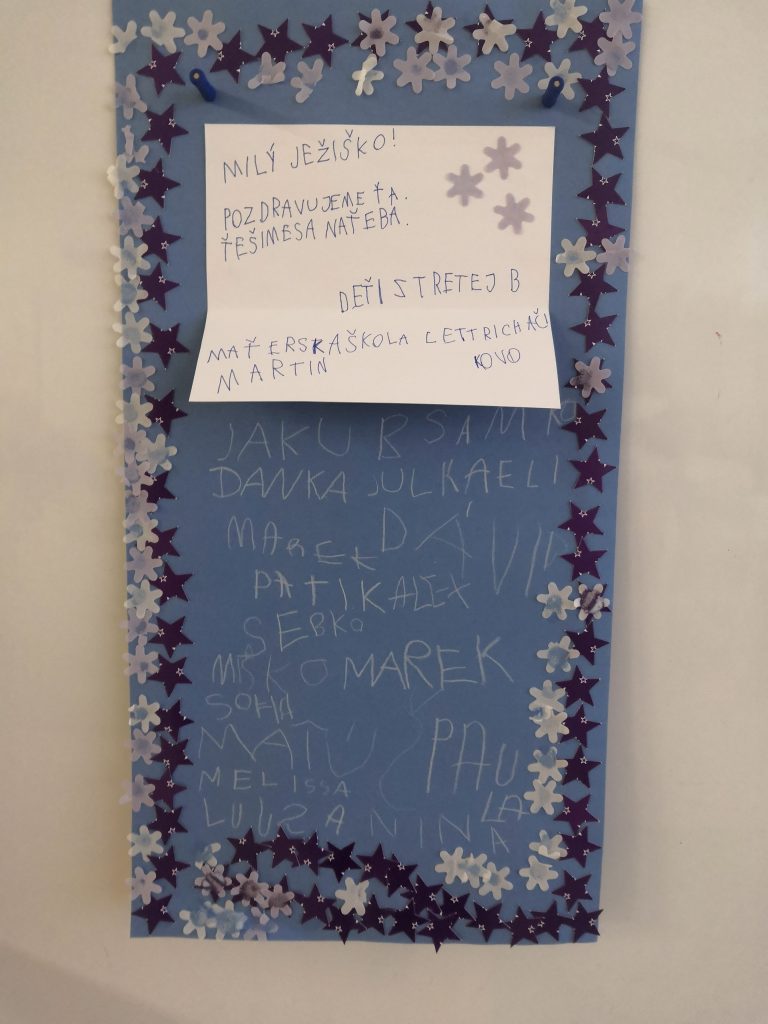 MILÝ JEŽIŠKO!
POZDRAVUJEME ŤA.
ŤEŠIMESA NAŤEBA.
DEŤI S TRETEJ B
MAŤERSKAŠKOLA LETTRICHAČU
MARTIN KOVO
JAKUB SAMKO
DANKA JULKA ELI
MAREK DÁVID
PATIK ALEX
SEBKO
MIŠKO MAREK
SOFIA
MATÚŠ PAULA
MELISSA
LUJZA NINA